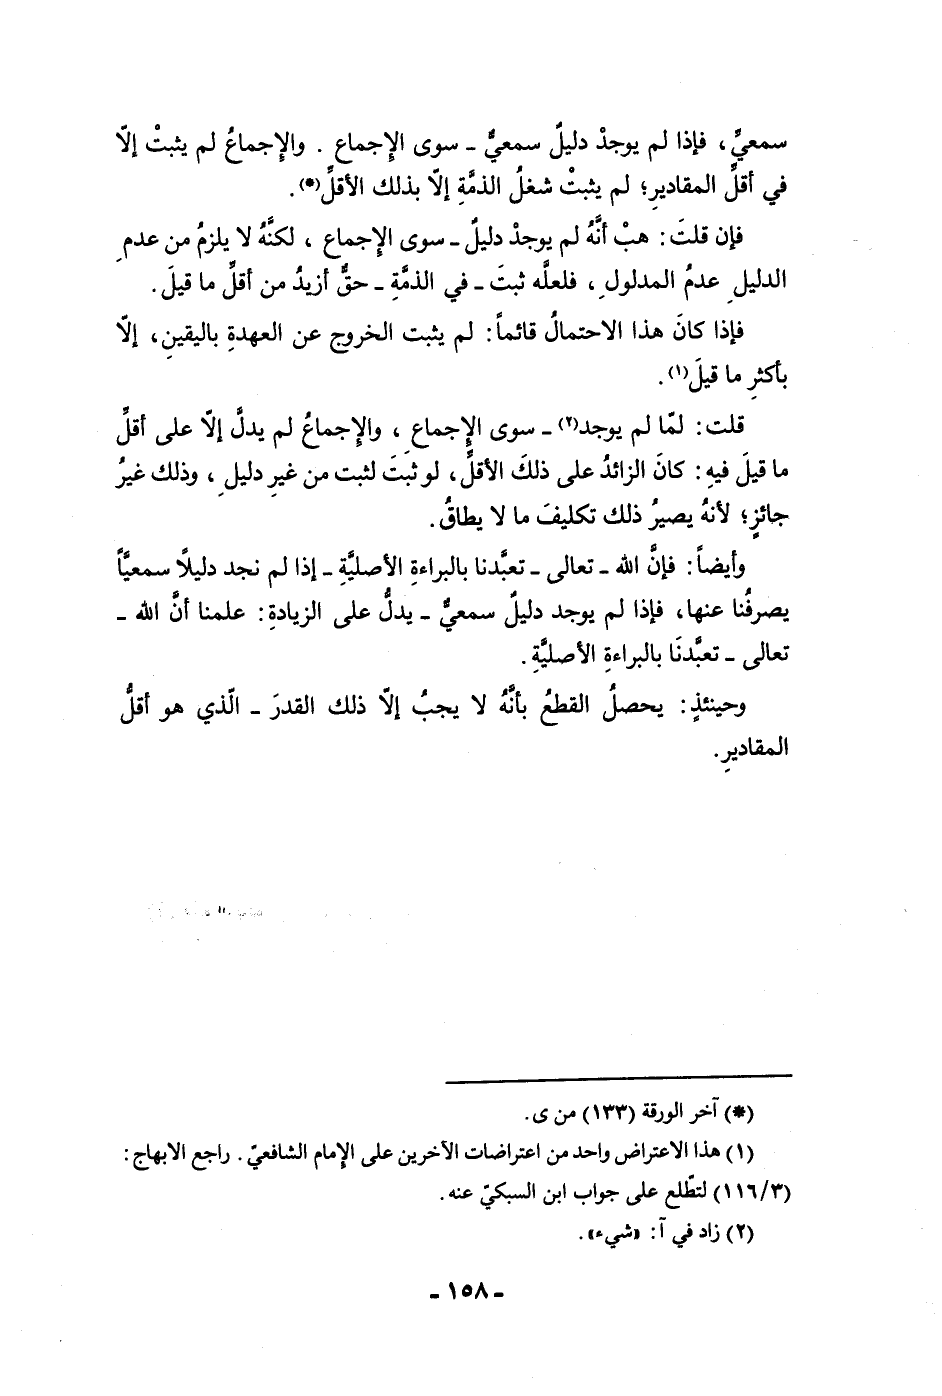 سمعيٍّ، فإذا لم يوجدْ دليلٌ سمعيٌّ ـ سوى الإِجماع . والإِجماعُ لم يثبتْ إلّا
في أقلِّ المقاديرِ؛ لم يثبتْ شغلُ الذمَّةِ إلّا بذلك الأقلِّ(*).
فإن قلتَ: هبْ أنَّهُ لم يوجدْ دليلٌ ـ سوى الإِجماع ، لكنَّهُ لا يلزمُ من عدمِ
الدليلِ عدمُ المدلولِ، فلعلَّه ثبتَ ـ في الذمَّةِ ـ حقٌّ أزيدُ من أقلِّ ما قيلَ.
فإذا كانَ هذا الاحتمالُ قائماً: لم يثبت الخروج عن العهدةِ باليقينِ، إلّا
بأكثرِ ما قيلَ(١).
قلت: لمّا لم يوجد(٢) ـ سوى الإِجماعِ ، والإِجماعُ لم يدلَّ إلّا على أقلِّ
ما قيلَ فيهِ: كانَ الزائدُ على ذلكَ الأقلِّ، لو ثبتَ لثبت من غيرِ دليلٍ ، وذلك غيرُ
جائزٍ؛ لأنهُ يصيرُ ذلك تكليفَ ما لا يطاقُ.
وأيضاً: فإنَّ الله ـ تعالى ـ تعبَّدنا بالبراءةِ الأصليَّةِ ـ إذا لم نجد دليلًا سمعيًّاً
يصرفُنا عنها، فإذا لم يوجد دليلٌ سمعيٌّ ـ يدلُّ على الزيادةِ: علمنا أنَّ الله ـ
تعالى ـ تعبَّدنَا بالبراءةِ الأصليَّةِ.
وحينئذٍ: يحصلُ القطعُ بأنَّهُ لا يجبُ إلّا ذلك القدرَ ـ الّذي هو أقلُّ
المقاديرِ.
(*) آخر الورقة (١٣٣) من ى.
(١) هذا الاعتراض واحد من اعتراضات الآخرين على الإِمام الشافعيّ. راجع الابهاج:
(١١٦/٣) لتطّلع على جواب ابن السبكيّ عنه.
(٢) زاد في آ: «شيء».
ـ ١٥٨ ـ